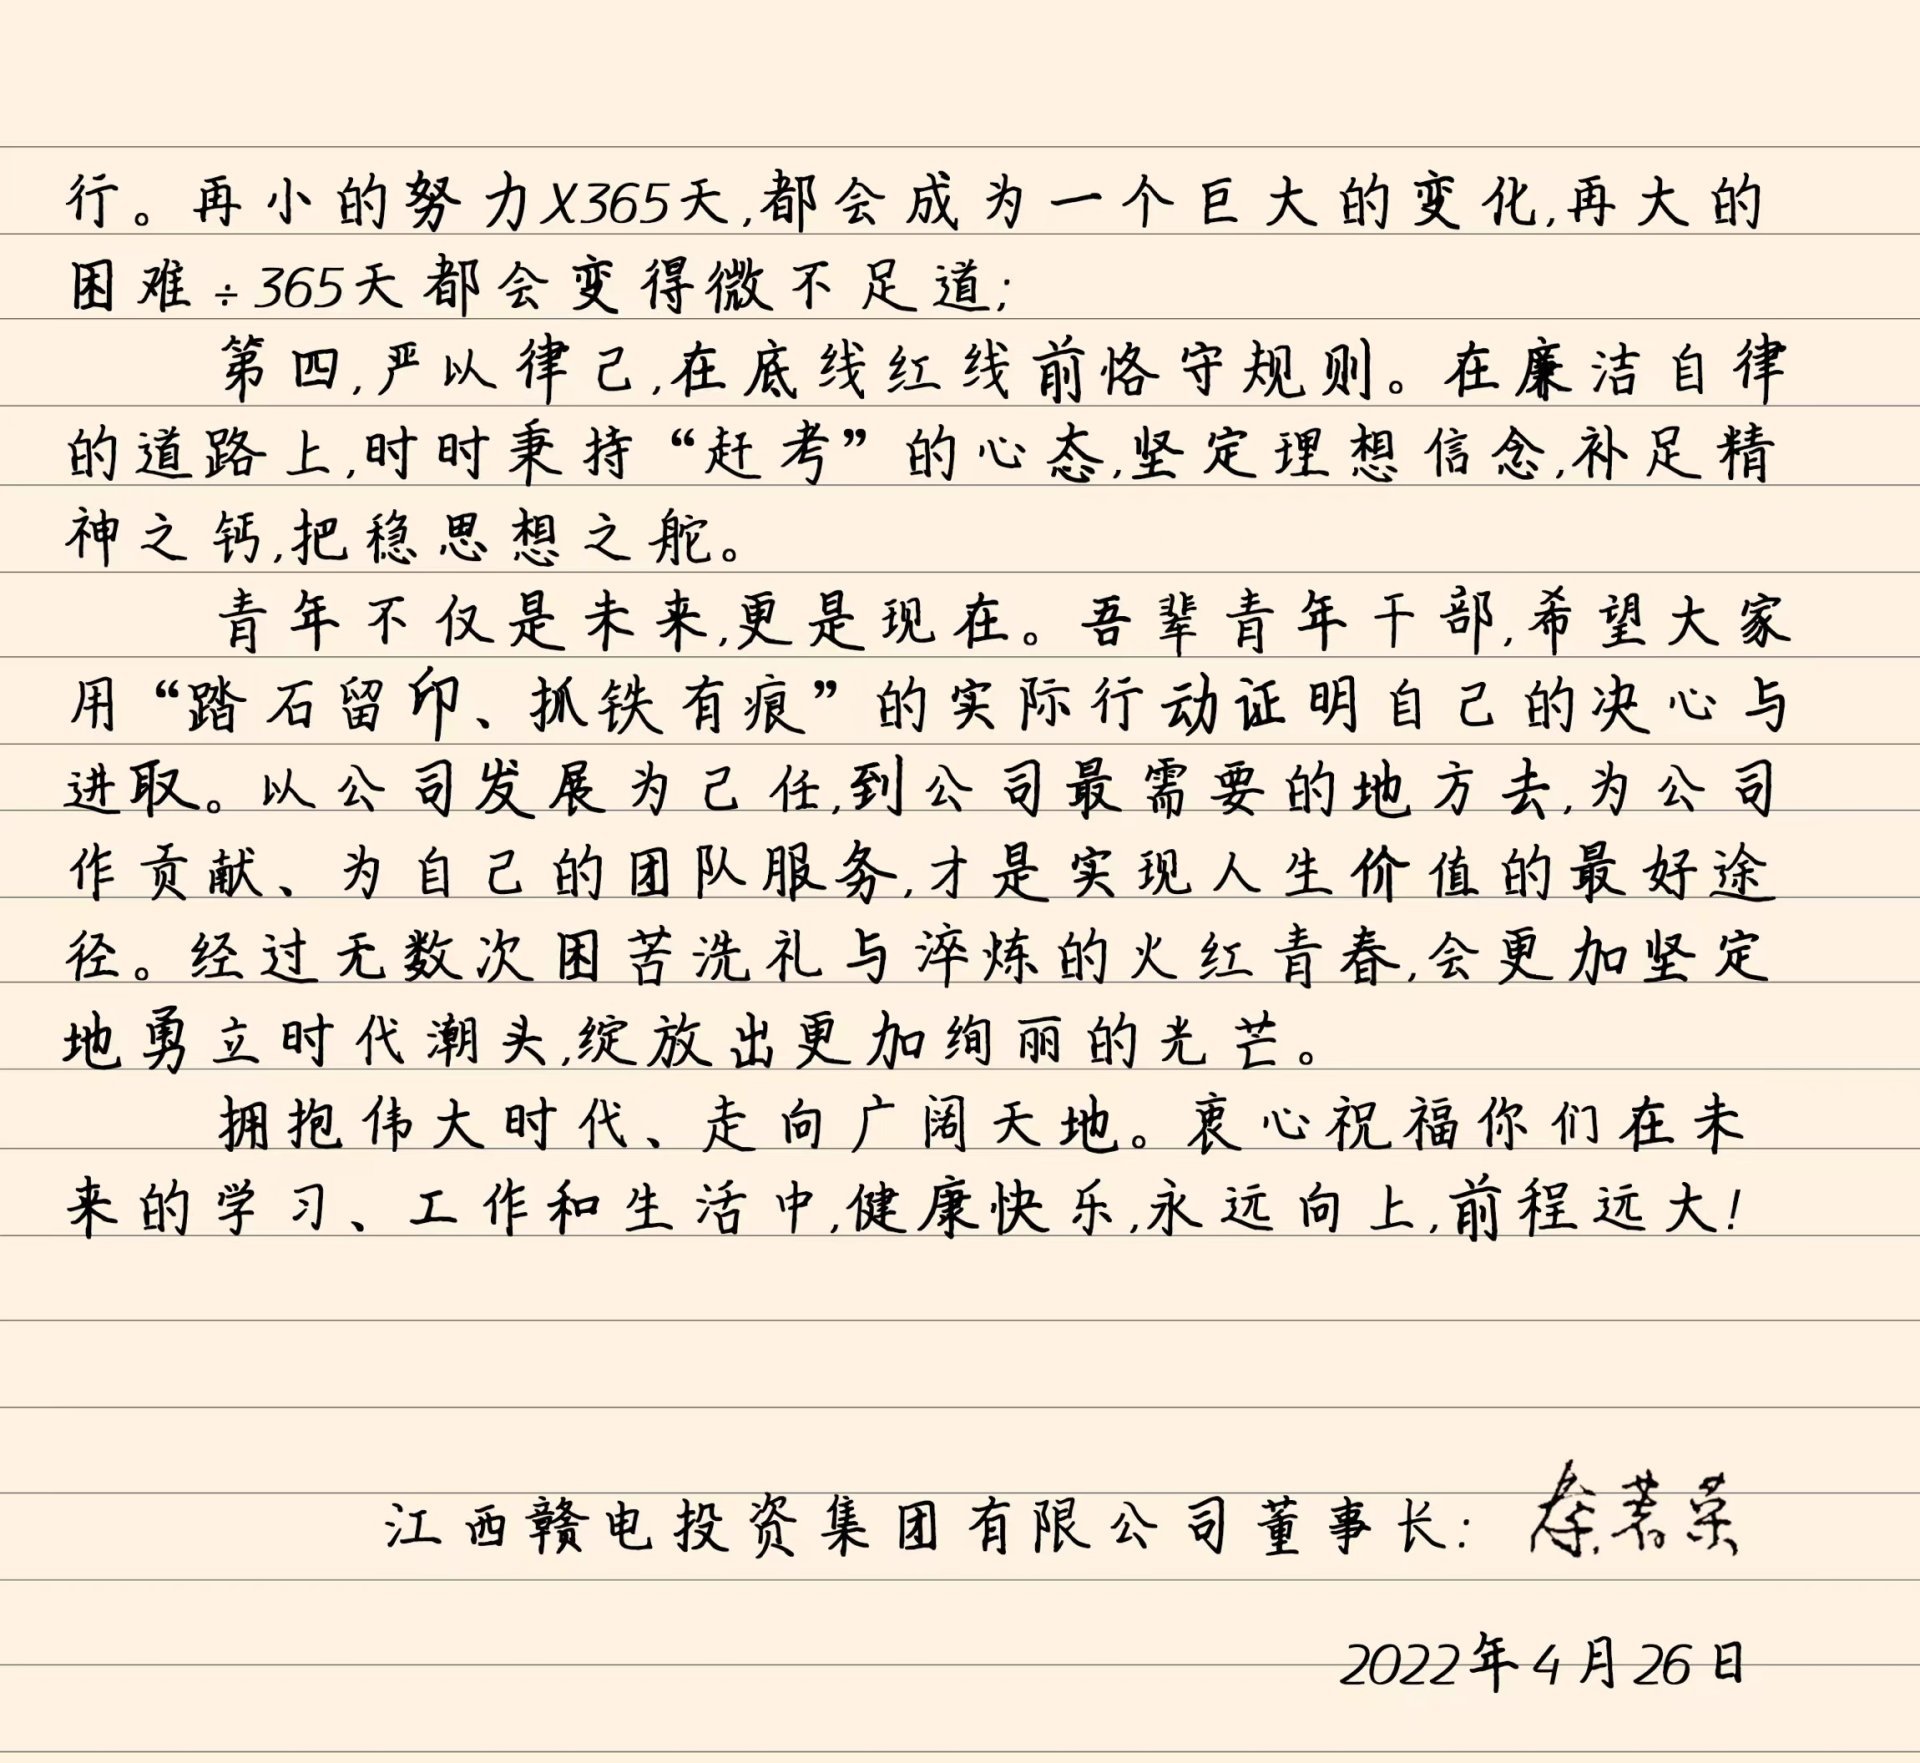 行。再小的努力X365天,都会成为一个巨大的变化,再大的
困难÷365天都会变得微不足道;
第四,严以律己,在底线红线前恪守规则。在廉洁自律
的道路上,时时秉持“赶考”的心态,坚定理想信念,补足精
神之钙,把稳思想之舵。
青年不仅是未来,更是现在。吾辈青年干部,希望大家
用“踏石留印、抓铁有痕”的实际行动证明自己的决心与
进取。以公司发展为己任,到公司最需要的地方去,为公司
作贡献、为自己的团队服务,才是实现人生价值的最好途
径。经过无数次困苦洗礼与淬炼的火红青春,会更加坚定
地勇立时代潮头,绽放出更加绚丽的光芒。
拥抱伟大时代、走向广阔天地。衷心祝福你们在未
来的学习、工作和生活中,健康快乐,永远向上,前程远大!
江西赣电投资集团有限公司董事长:
2022年4月26日